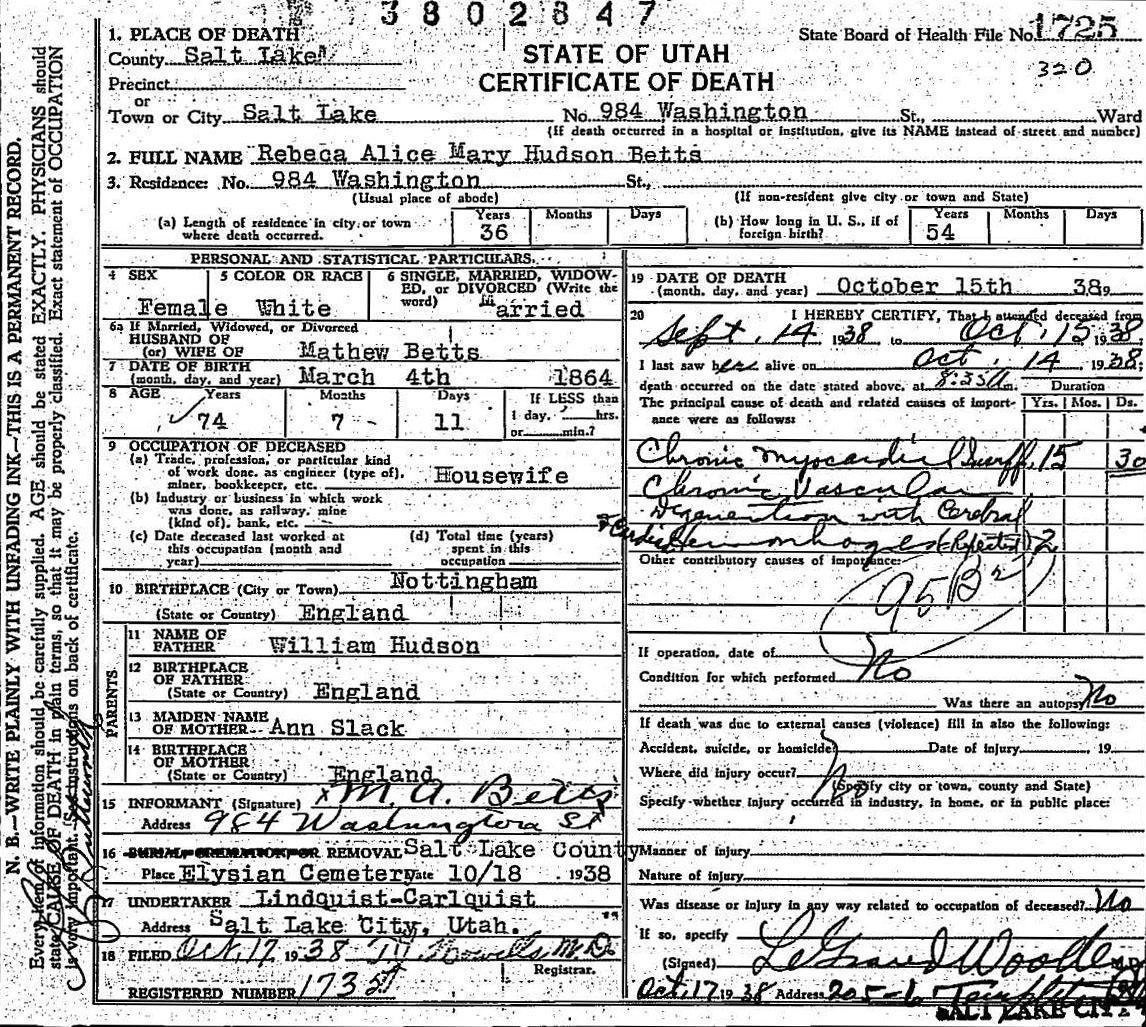 3802847
State Board of Health File No. 1725
320
STATE OF UTAH
CERTIFICATE OF DEATH
1. PLACE OF DEATH
County Salt Lake
Precinct
or
Town or City Salt Lake No. 984 Washington St., Ward
(If death occurred in a hospital or institution, give its NAME instead of street and number)
2. FULL NAME Rebeca Alice Mary Hudson Betts
3. Residence: No. 984 Washington St.,
(Usual place of abode) (If non-resident give city or town and State)
(a) Length of residence in city or town where death occurred. Years 36 Months Days
(b) How long in U. S., if of foreign birth? Years 54 Months Days
PERSONAL AND STATISTICAL PARTICULARS.
4 SEX Female
5 COLOR OR RACE White
6 SINGLE, MARRIED, WIDOWED, or DIVORCED (Write the word) Married
6a If Married, Widowed, or Divorced
HUSBAND OF
(or) WIFE OF Mathew Betts
7 DATE OF BIRTH
(month, day, and year) March 4th 1864
8 AGE Years 74 Months 7 Days 11 If LESS than 1 day, hrs. or min.?
9 OCCUPATION OF DECEASED
(a) Trade, profession, or particular kind of work done, as engineer (type of), miner, bookkeeper, etc. Housewife
(b) Industry or business in which work was done, as railway, mine (kind of), bank, etc.
(c) Date deceased last worked at this occupation (month and year)
(d) Total time (years) spent in this occupation
10 BIRTHPLACE (City or Town) Nottingham
(State or Country) England
PARENTS
11 NAME OF FATHER William Hudson
12 BIRTHPLACE OF FATHER
(State or Country) England
13 MAIDEN NAME OF MOTHER Ann Slack
14 BIRTHPLACE OF MOTHER
(State or Country) England
15 INFORMANT (Signature) x M. A. Betts
Address 984 Washington St
16 BURIAL CREMATION OR REMOVAL Salt Lake County
Place Elysian Cemetery Date 10/18 1938
17 UNDERTAKER Lindquist-Carlquist
Address Salt Lake City, Utah.
18 FILED Oct. 17 1938 M.D.
Registrar.
REGISTERED NUMBER 1735
19 DATE OF DEATH
(month, day, and year) October 15th 38,
20 I HEREBY CERTIFY, That I attended deceased from
Sept. 14 1938 to Oct. 15 1938,
I last saw her alive on Oct. 14, 1938;
death occurred on the date stated above, at 8:35 A m. Duration
The principal cause of death and related causes of importance were as follows: Yrs. Mos. Ds.
Chronic Myocardial Insuff. 15 30
Chronic Vascular
Degeneration with Cerebral
& Cardiac Hemorrhages (Repeated) 2
Other contributory causes of importance:
95B2
If operation, date of
Condition for which performed No
Was there an autopsy No
If death was due to external causes (violence) fill in also the following:
Accident, suicide, or homicide? Date of injury , 19
Where did injury occur? No
(Specify city or town, county and State)
Specify whether injury occurred in industry, in home, or in public place:
Manner of injury
Nature of injury
Was disease or injury in any way related to occupation of deceased? No
If so, specify
(Signed) LeGrand Woolley M.D.
Oct. 17 1938 Address 205-6 Templeton
SALT LAKE CITY
N. B.—WRITE PLAINLY WITH UNFADING INK—THIS IS A PERMANENT RECORD.
Every item of information should be carefully supplied. AGE should be stated EXACTLY. PHYSICIANS should
state CAUSE OF DEATH in plain terms, so that it may be properly classified. Exact statement of OCCUPATION
is very important. (See instructions on back of certificate.